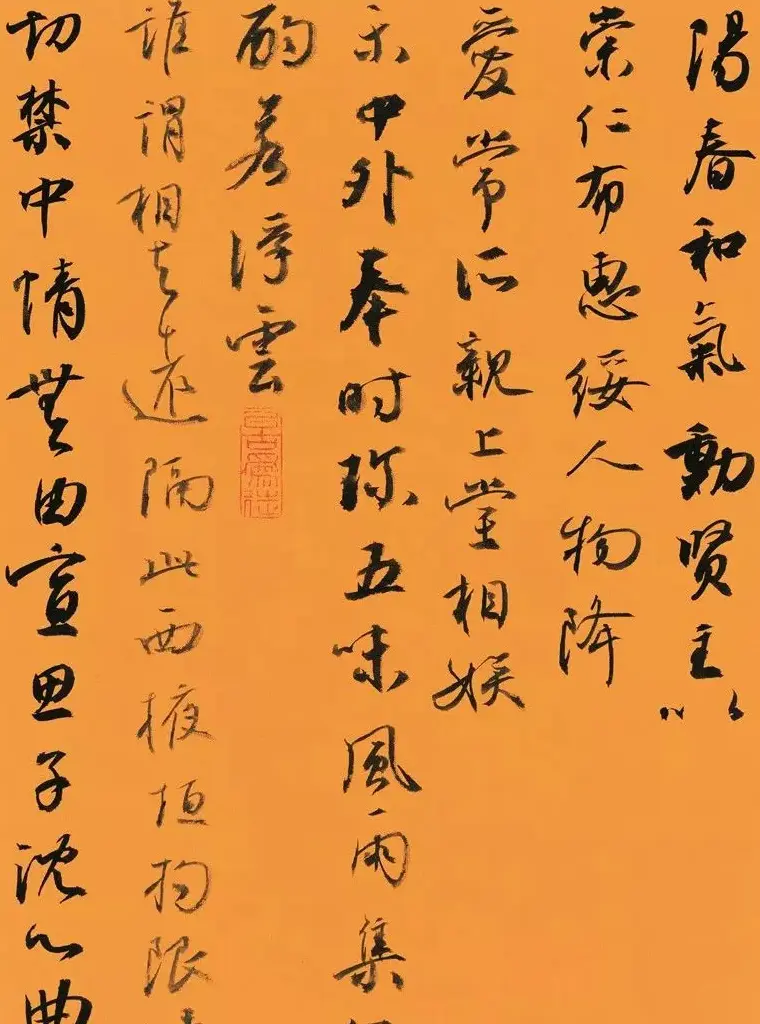 陽春和氣動贤主以
崇仁布惠綏人物降
愛常所親上堂相娱
樂中外奉时珎五味風雨集
酌若浮雲
誰謂相去遠隔此西掖垣拘限
切禁中情無由宣思子沈心曲